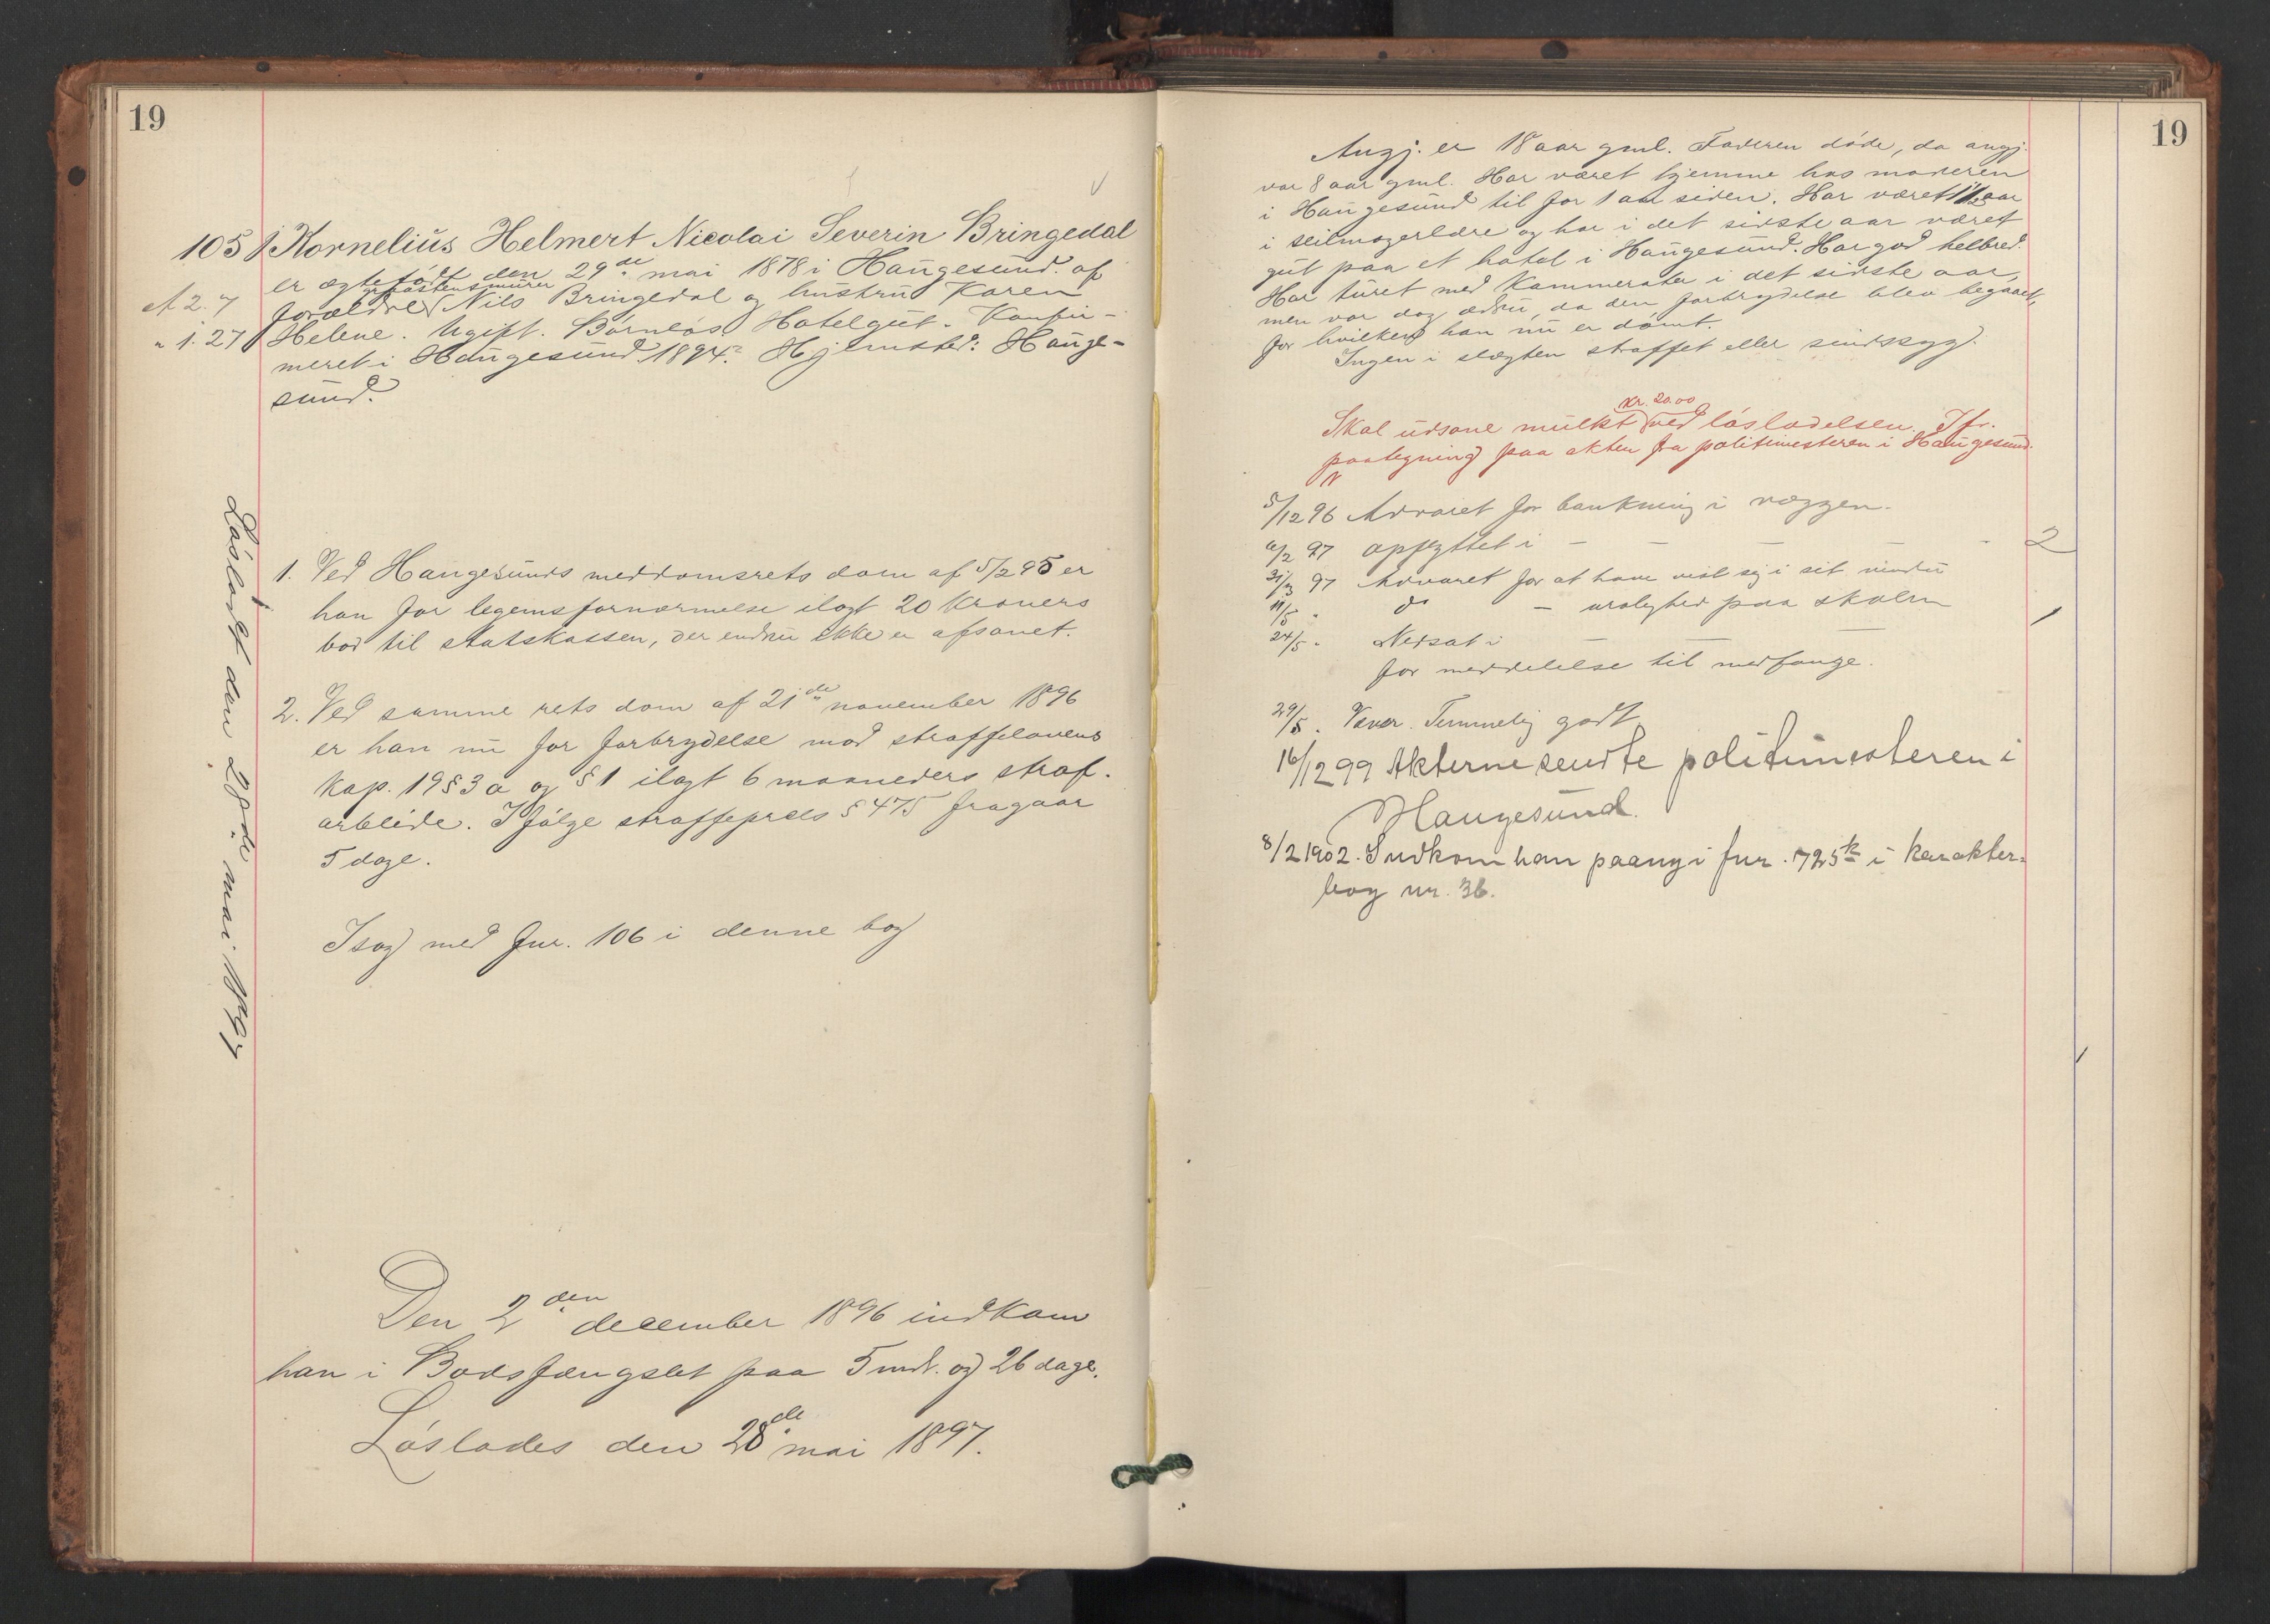 19
105 Kornelius Helmert Nicolai Severin Bringedal
er ægtefødt den 29de mai 1878 i Haugesund af
forældre graastensmurer Nils Bringedal og hustru Karen
Helene. Ugift. Barnløs. Hotelgut. Konfir-
meret i Haugesund 1894. Hjemsted: Hauge-
sund.
A 2. 7
" 1. 27
Løsladt den 28de mai 1897
1. Ved Haugesunds meddomsrets dom af 5/2 95 er
han for legemsfornærmelse ilagt 20 kroners
bod til statskassen, der endnu ikke er afsonet.
2. Ved samme rets dom af 21de november 1896
er han nu for forbrydelse mod straffelovens
kap. 19 § 3 a og § 1 ilagt 6 maaneders straf-
arbeide. Ifølge straffeprocs § 475 fragaar
5 dage.
I sag med fnr. 106 i denne bog
Den 2den december 1896 indkom
han i Bodsfængslet paa 5 mdr. og 26 dage.
Løslades den 28de mai 1897.
19
Angj. er 18 aar gml. Faderen døde, da angj.
var 8 aar gml. Har været hjemme hos moderen
i Haugesund til for 1 aar siden. Har været 1 1/2 aar
i seilmagerlære og har i det sidste aar været
gut paa et hotel i Haugesund. Har god helbred.
Har turet med kammerater i det sidste aar,
men var dog ædru, da den forbrydelse blev begaaet,
for hvilken han nu er dømt.
Ingen i slægten straffet eller sindssyg.
Skal udsone mulkt kr. 20.00 ved løsladelsen. Jfr.
paategning paa akten fra politimesteren i Haugesund.
5/12 96 Advaret for bankning i væggen.
6/2 97 opflyttet i — — — — — 2
31/3 97 Advaret for at have vist sig i sit vindu
11/5 " do — urolighed paa skolen
24/5 " Nedsat i — — — 1
for meddelelse til medfange.
29/5. Væver. Temmelig godt
16/12 99 Akterne sendte politimesteren i
Haugesund.
8/2 1902. Indkom han paany i fnr. 725 k i karakter-
bog nr. 36.
1